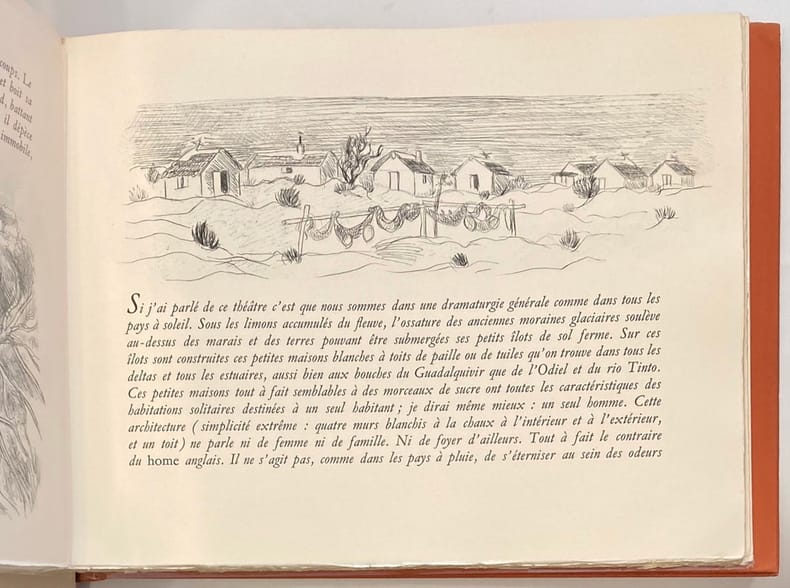 coups. Le
et boit sa
d, battant
il dépèce
immobile,
Si j'ai parlé de ce théâtre c'est que nous sommes dans une dramaturgie générale comme dans tous les
pays à soleil. Sous les limons accumulés du fleuve, l'ossature des anciennes moraines glaciaires soulève
au-dessus des marais et des terres pouvant être submergées ses petits îlots de sol ferme. Sur ces
îlots sont construites ces petites maisons blanches à toits de paille ou de tuiles qu'on trouve dans tous les
deltas et tous les estuaires, aussi bien aux bouches du Guadalquivir que de l'Odiel et du rio Tinto.
Ces petites maisons tout à fait semblables à des morceaux de sucre ont toutes les caractéristiques des
habitations solitaires destinées à un seul habitant ; je dirai même mieux : un seul homme. Cette
architecture (simplicité extrême : quatre murs blanchis à la chaux à l'intérieur et à l'extérieur,
et un toit) ne parle ni de femme ni de famille. Ni de foyer d'ailleurs. Tout à fait le contraire
du home anglais. Il ne s'agit pas, comme dans les pays à pluie, de s'éterniser au sein des odeurs